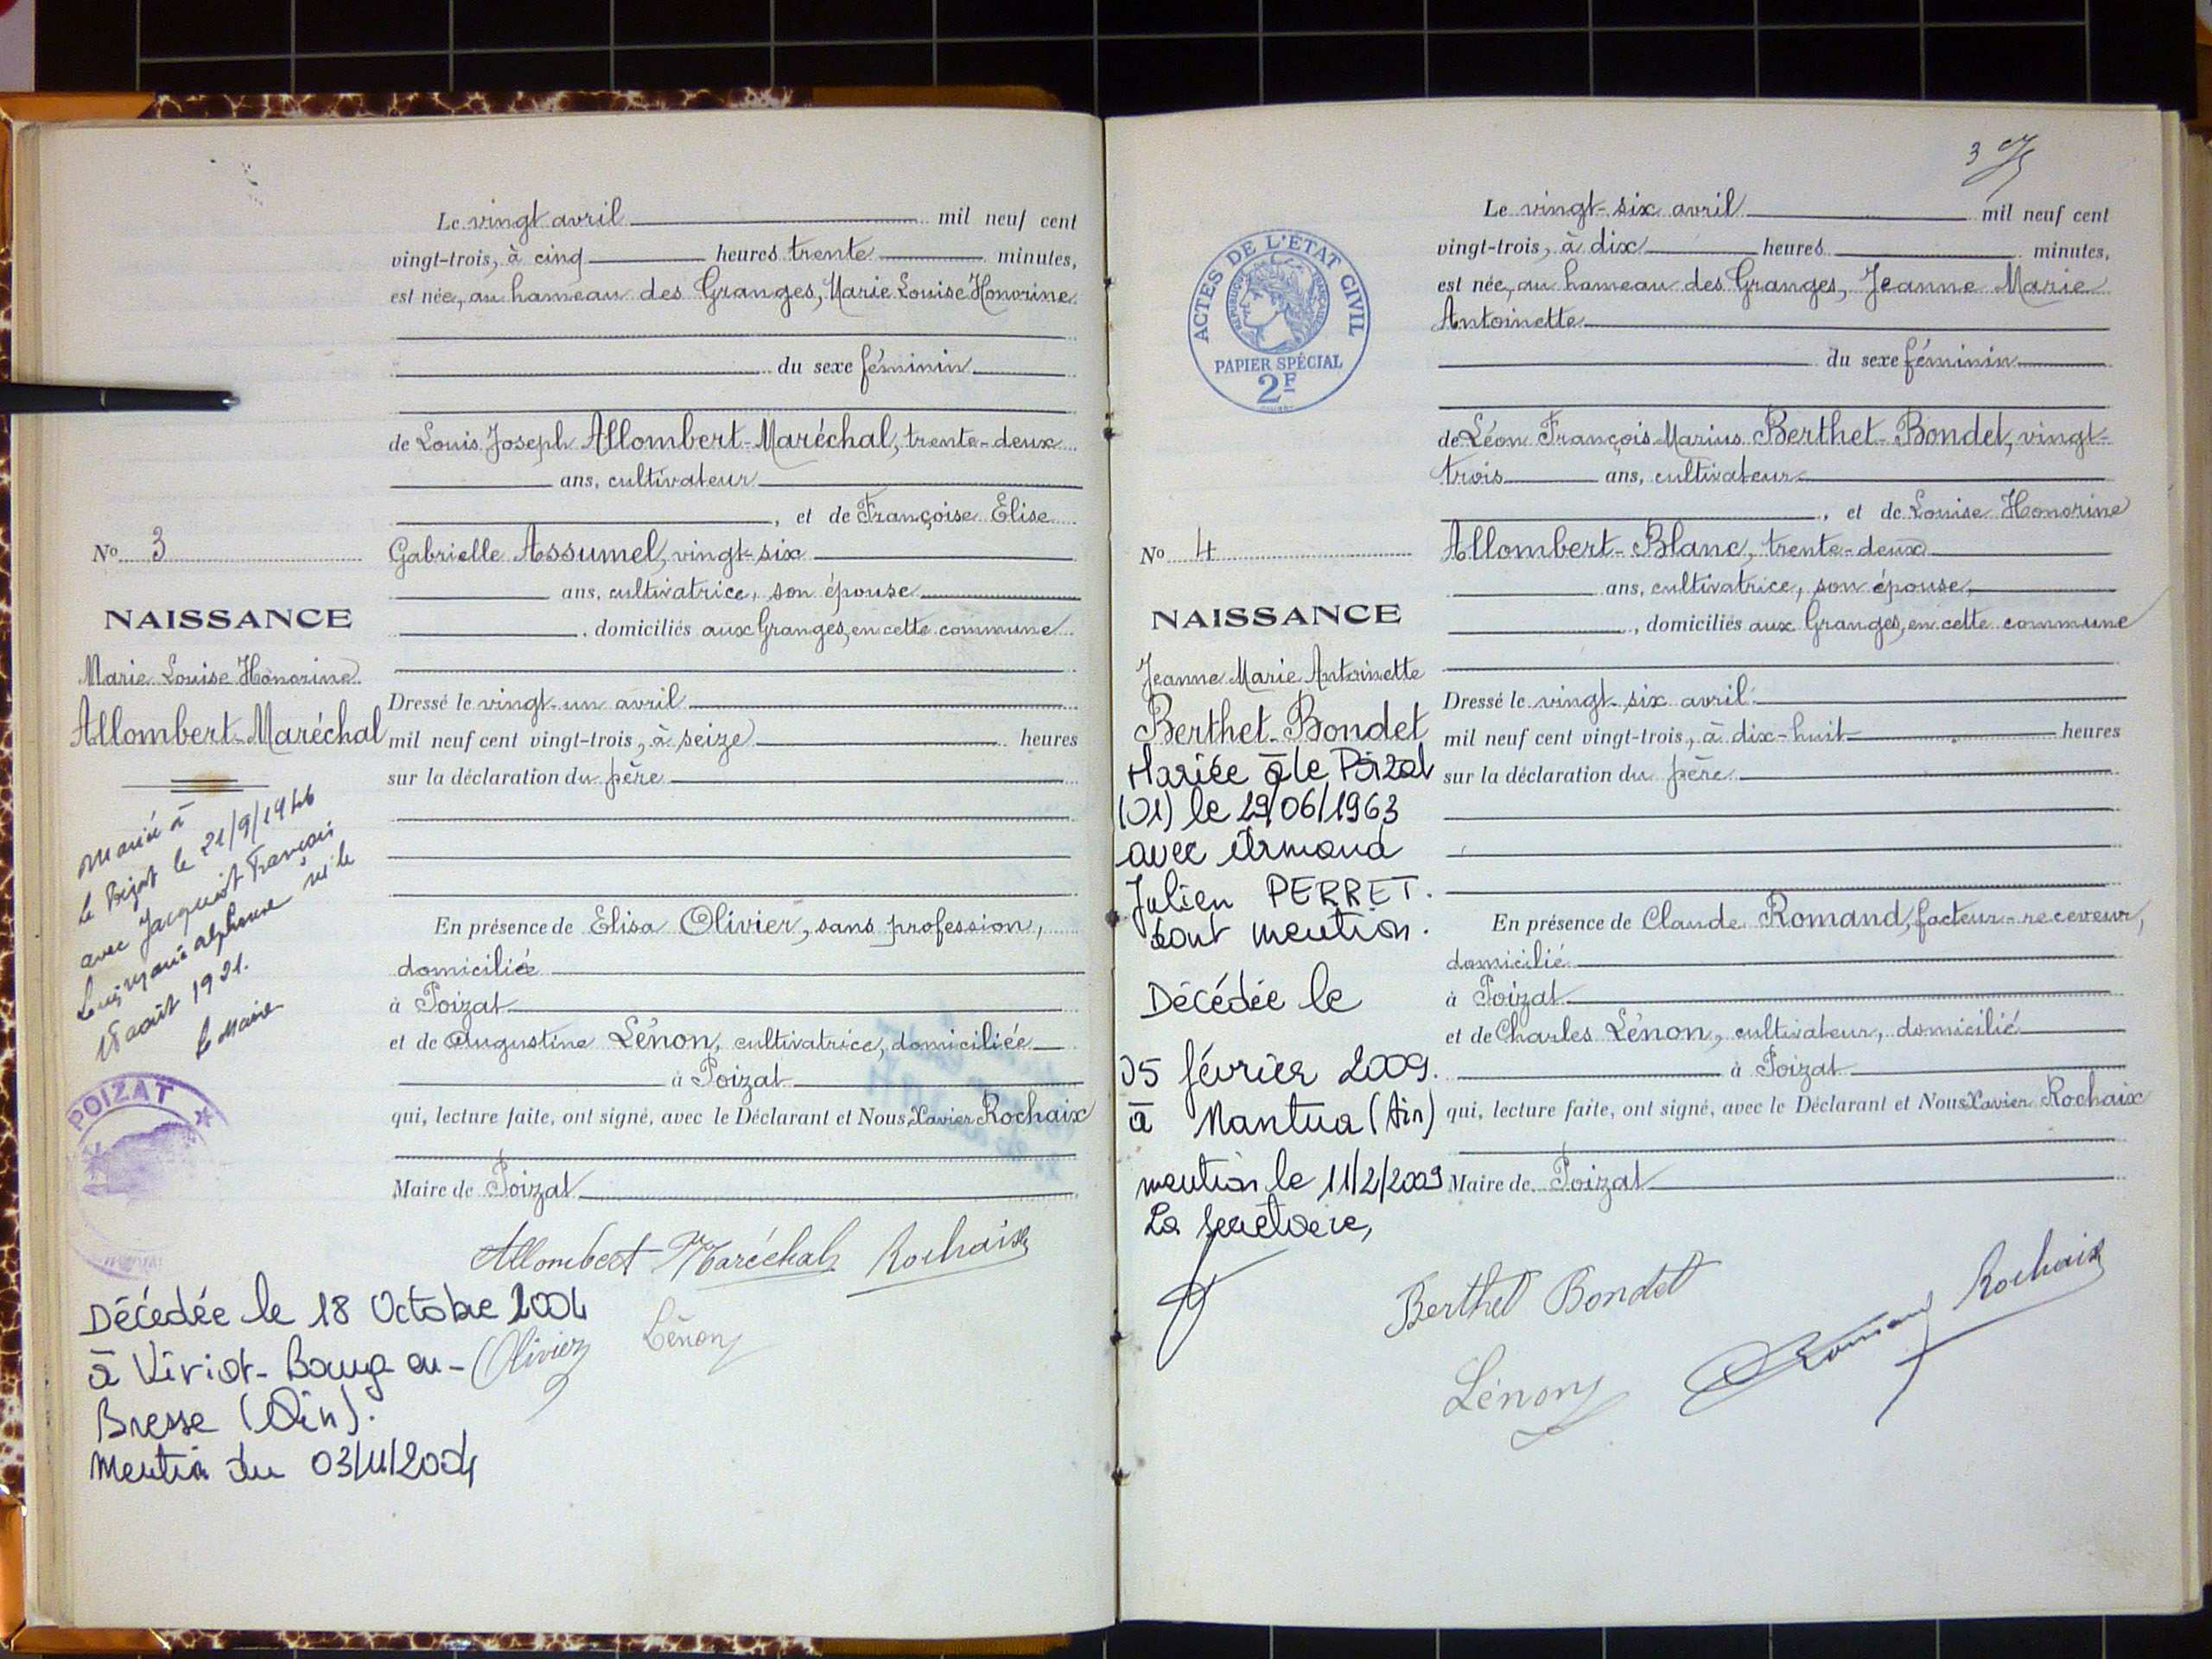 Le vingt avril mil neuf cent
vingt-trois, à cinq heures trente minutes,
est née, au hameau des Granges, Marie Louise Honorine
du sexe féminin
de Louis Joseph Allombert-Maréchal, trente-deux
ans, cultivateur
, et de Françoise Elise
Gabrielle Assumel, vingt-six
ans, cultivatrice, son épouse
, domiciliés aux Granges, en cette commune
Dressé le vingt-un avril
mil neuf cent vingt-trois, à seize heures
sur la déclaration du père
En présence de Elisa Olivier, sans profession,
domiciliée
à Poizat
et de Augustine Lénon, cultivatrice, domiciliée
à Poizat
qui, lecture faite, ont signé, avec le Déclarant et Nous, Xavier Rochaix
Maire de Poizat
Allombert Maréchal Rochaix
Olivier Lénon
No 3
NAISSANCE
Marie Louise Honorine
Allombert-Maréchal
Mariée à
Le Poizat le 21/9/1946
avec Jacquiot François
alphonse né le
18 août 1921.
Le Maire
POIZAT
Décédée le 18 Octobre 2004
à Viriat-Bourg en-
Bresse (Ain).
Mention du 03/11/2004
3
Le vingt-six avril mil neuf cent
vingt-trois, à dix heures minutes,
est née, au hameau des Granges, Jeanne Marie
Antoinette
du sexe féminin
de Léon François Marius Berthet-Bondet, vingt-
trois ans, cultivateur
, et de Louise Honorine
Allombert-Blanc, trente-deux
ans, cultivatrice, son épouse,
, domiciliés aux Granges, en cette commune
Dressé le vingt-six avril
mil neuf cent vingt-trois, à dix-huit heures
sur la déclaration du père
En présence de Claude Romand, facteur-receveur,
domicilié
à Poizat
et de Charles Lénon, cultivateur, domicilié
à Poizat
qui, lecture faite, ont signé, avec le Déclarant et Nous Xavier Rochaix
Maire de Poizat
Berthet Bondet Rochaix
Lénon Romand
ACTES DE L'ETAT CIVIL
REPUBLIQUE FRANÇAISE
PAPIER SPÉCIAL
2F
No 4
NAISSANCE
Jeanne Marie Antoinette
Berthet-Bondet
Mariée à le Poizat
(01) le 29/06/1963
avec Armand
Julien PERRET.
dont mention.
Décédée le
05 février 2009.
à Nantua (Ain)
mention le 11/2/2009
La secrétaire,